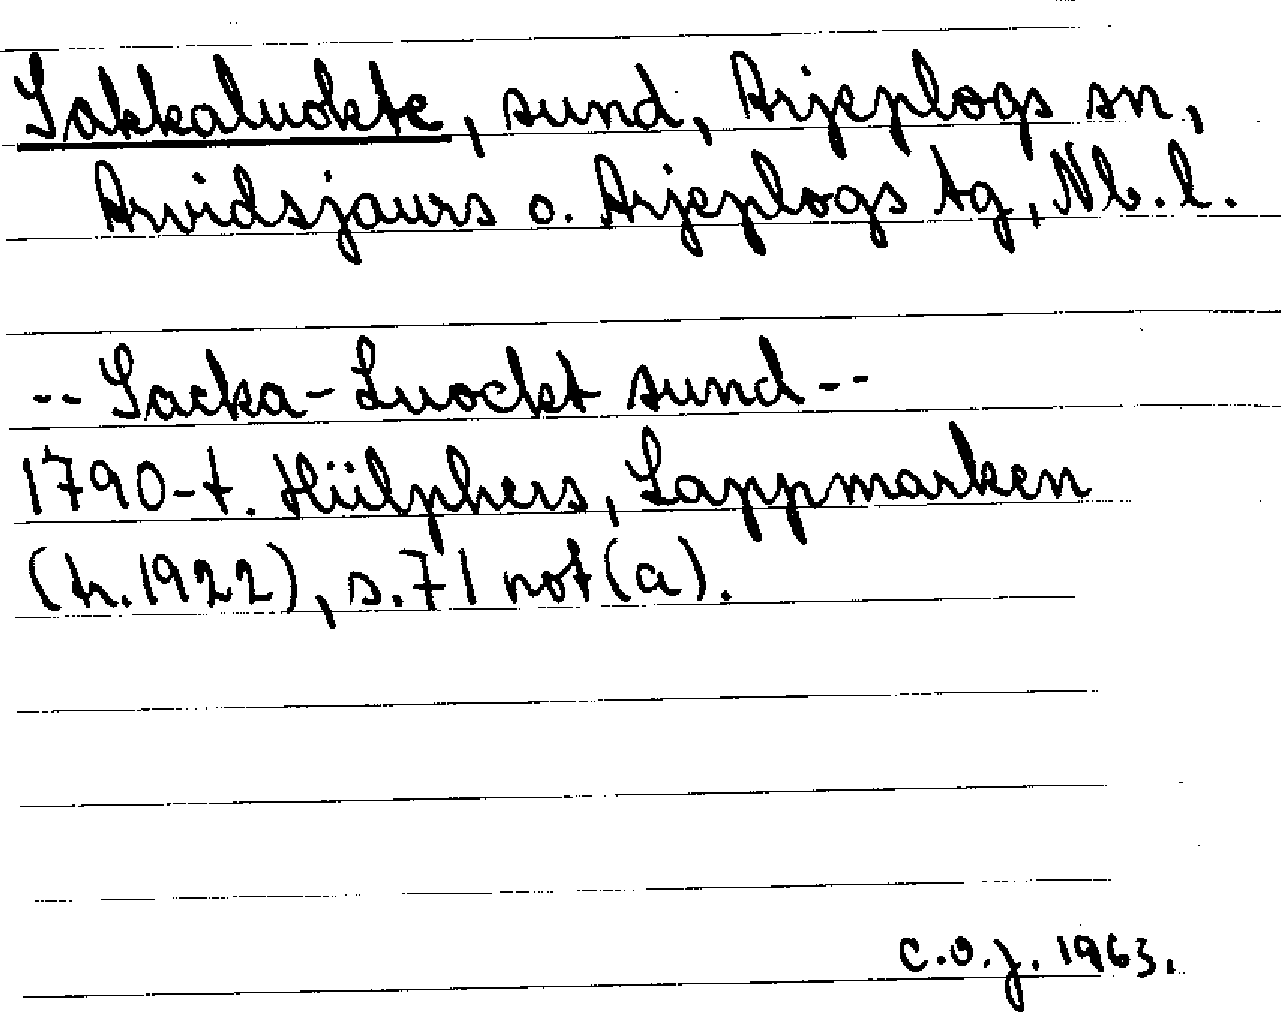 Sakkaluokte, sund, Arjeplogs sn,
Arvidsjaurs o. Arjeplogs tg, Nb. l.
-- Sacka-Luockt sund --
1790-t. Hülphers, Lappmarken
(tr. 1922), s. 71 not (a).
C.O.J. 1963.